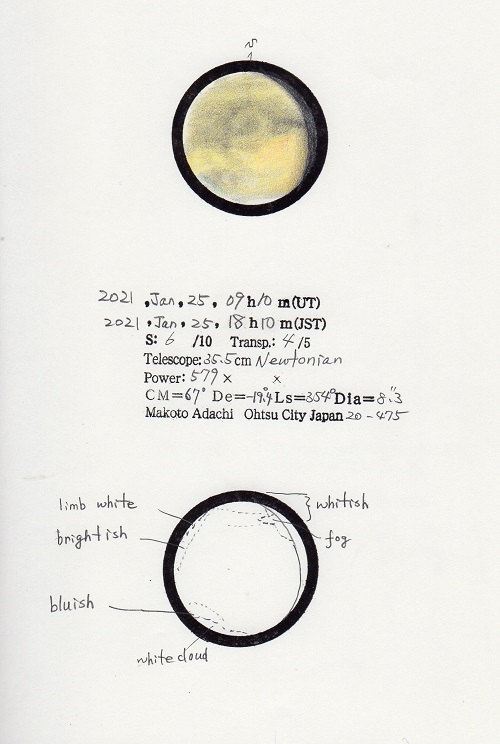 S
2021 , Jan , 25 , 09 h 10 m (UT)
2021 , Jan , 25 , 18 h 10 m (JST)
S: 6 /10 Transp.: 4 /5
Telescope: 35.5 cm Newtonian
Power: 579 × ×
CM=67° De=-19.4° Ls=354° Dia=8.3"
Makoto Adachi Ohtsu City Japan 20-475
limb white
whitish
brightish
fog
bluish
white cloud